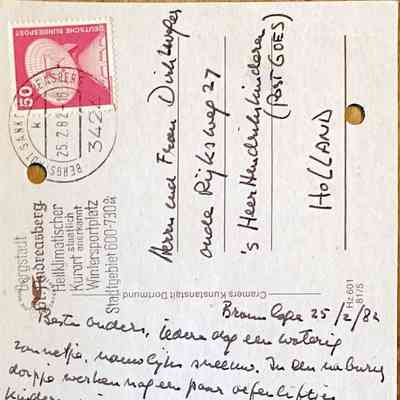 DEUTSCHE BUNDESPOST
50
SANKT ANDREASBERG
25.2.82
3424
Bergstadt
St. Andreasberg
Heilklimatischer
Kurort staatlich anerkannt
Wintersportplatz
Stadtgebiet 600-730 m
Herrn und Frau
oude Rijksweg 27
's Heer Hendrikskinderen
(Post GOES)
HOLLAND
Cramers Kunstanstalt Dortmund
Hz. 601
Braunlage 25/2/82
Beste ouders, iedere dag een waterig
zonnetje, nauwelijks sneeuw. In een naburig
dorpje werken nog een paar oefenliftjes